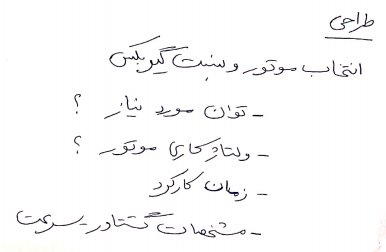 طراحی
انتخاب موتور و نسبت گیربکس
- توان مورد نیاز ؟
- ولتاژ کاری موتور ؟
- زمان کارکرد
- مشخصات گشتاور - سرعت